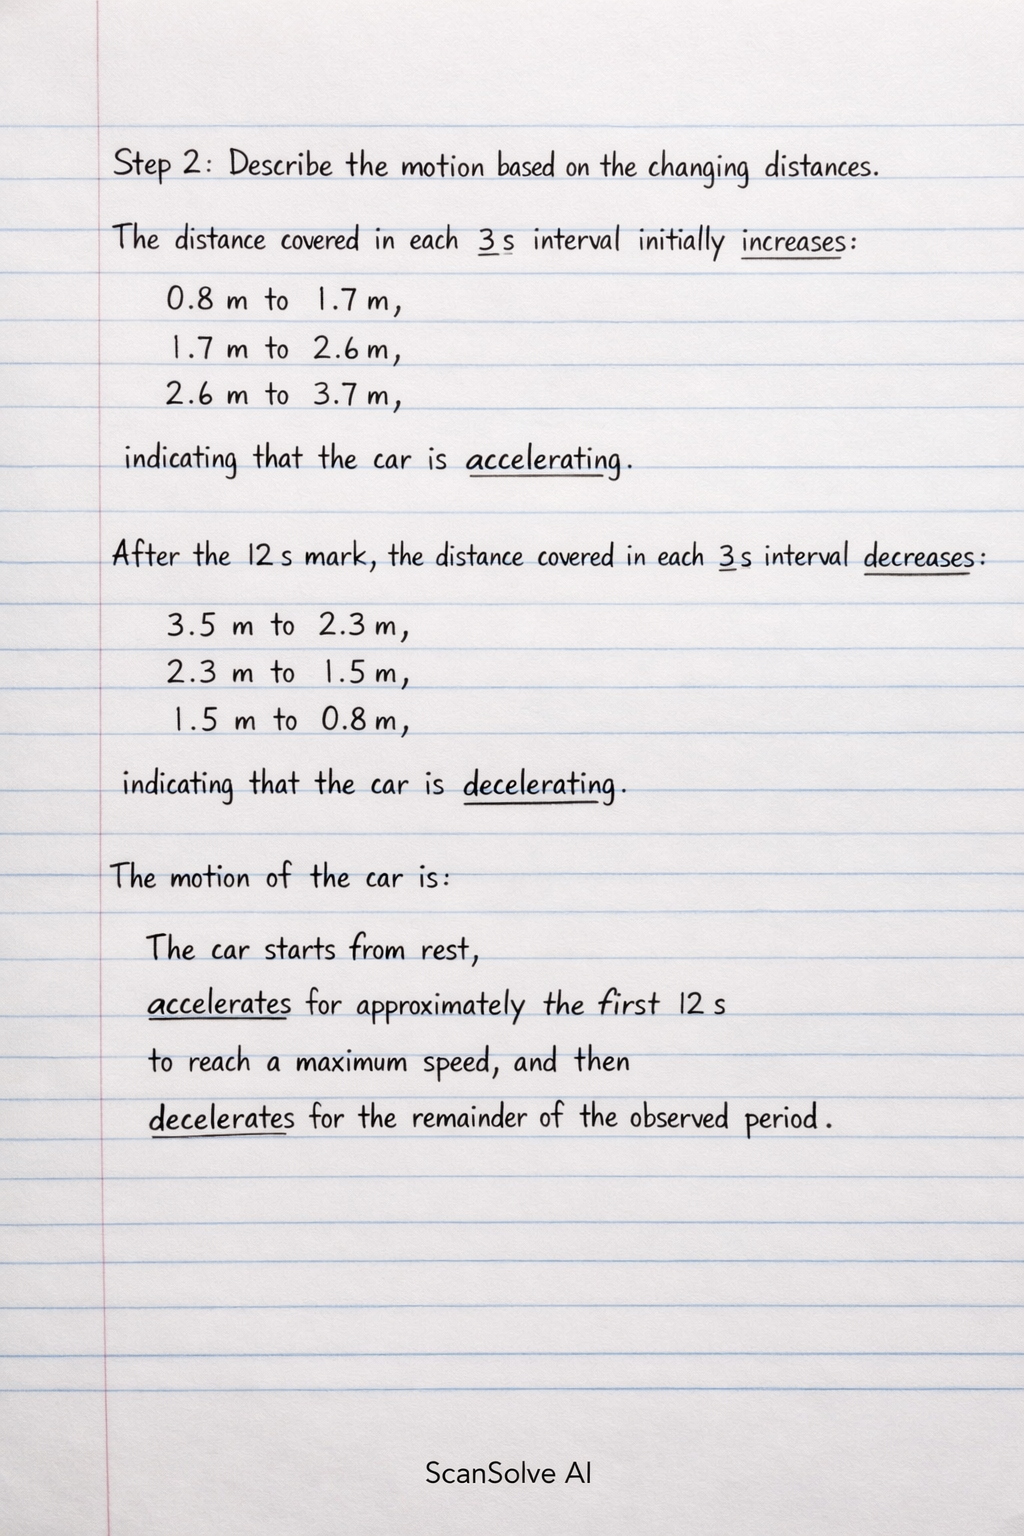 Step 2: Describe the motion based on the changing distances.
The distance covered in each 3 s interval initially increases:
0.8 m to 1.7 m,
1.7 m to 2.6 m,
2.6 m to 3.7 m,
indicating that the car is accelerating.
After the 12 s mark, the distance covered in each 3 s interval decreases:
3.5 m to 2.3 m,
2.3 m to 1.5 m,
1.5 m to 0.8 m,
indicating that the car is decelerating.
The motion of the car is:
The car starts from rest,
accelerates for approximately the first 12 s
to reach a maximum speed, and then
decelerates for the remainder of the observed period.
ScanSolve AI